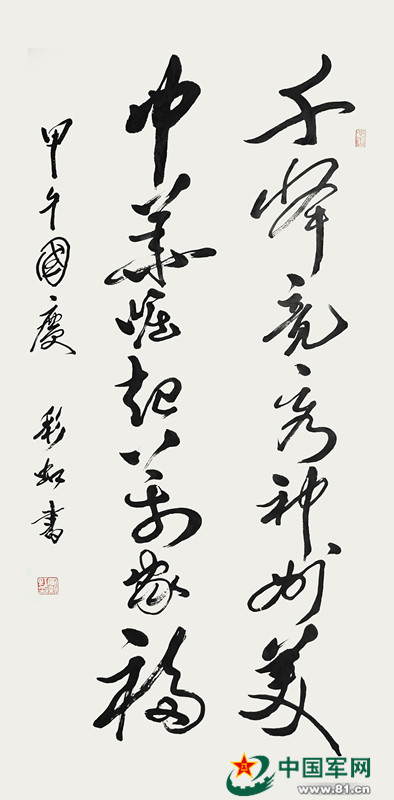 千峰竞秀神州美
中華崛起萬家福
甲午國慶
彩虹書
中国军网
www.81.cn